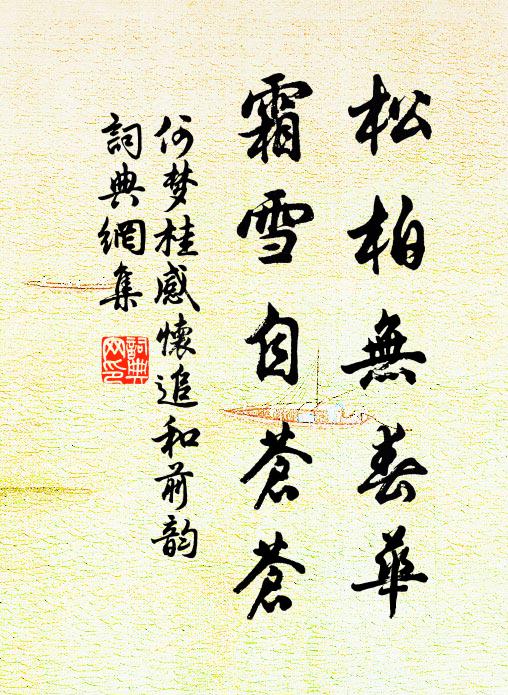 松柏無春華
霜雪自蒼蒼
何梦桂感懷追和前韵
詞典網集
詞典網印